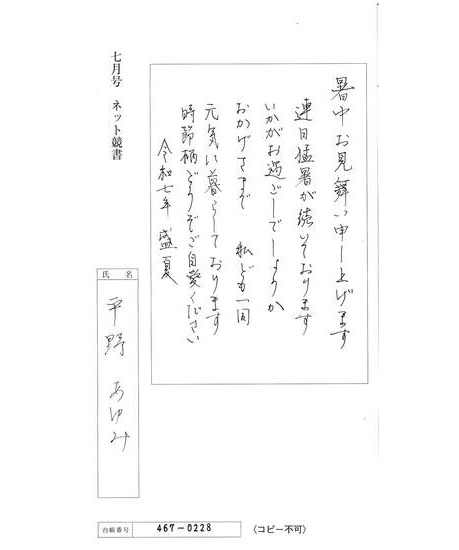 暑中お見舞い申し上げます
連日猛暑が続いております
いかがお過ごしでしょうか
おかげさまで 私ども一同
元気に暮らしております
時節柄どうぞご自愛ください
令和七年 盛夏
七月号 ネット競書
氏名
平野 あゆみ
台帳番号
467-0228
〈コピー不可〉